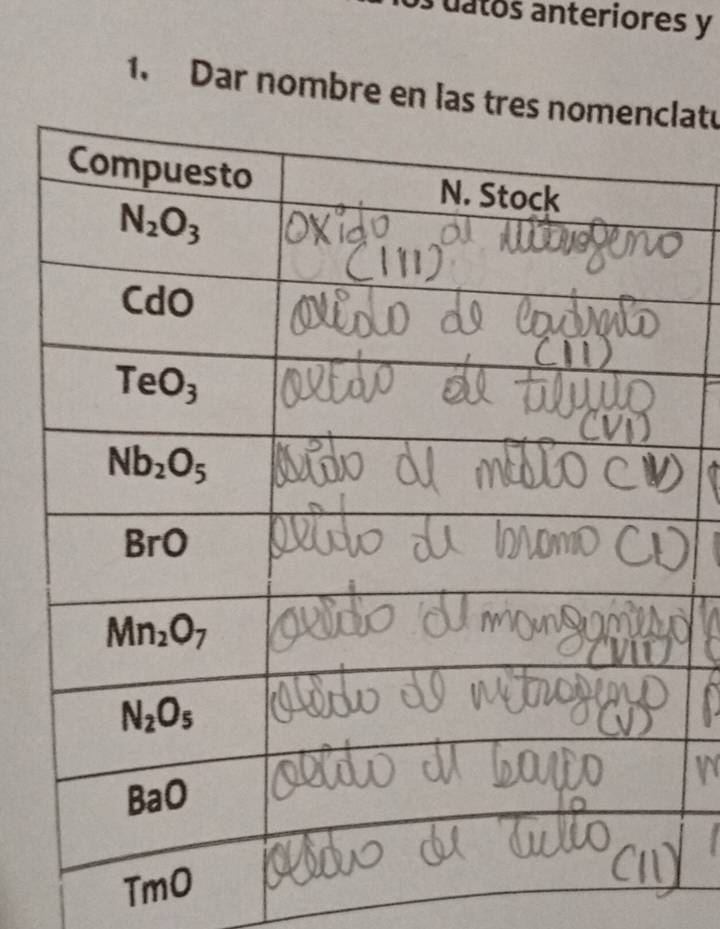 datos anteriores y
1. Dar nombre en las tres
Compuesto N. Stock
N₂O₃ oxido de nitrogeno
(III)
CdO oxido de cadmio
(II)
TeO₃ oxido de telurio
(VI)
Nb₂O₅ oxido de niobio (V)
BrO oxido de bromo (I)
Mn₂O₇ oxido de manganeso
(VII)
N₂O₅ oxido de nitrogeno
(V)
BaO oxido de bario
TmO oxido de tulio
(II)